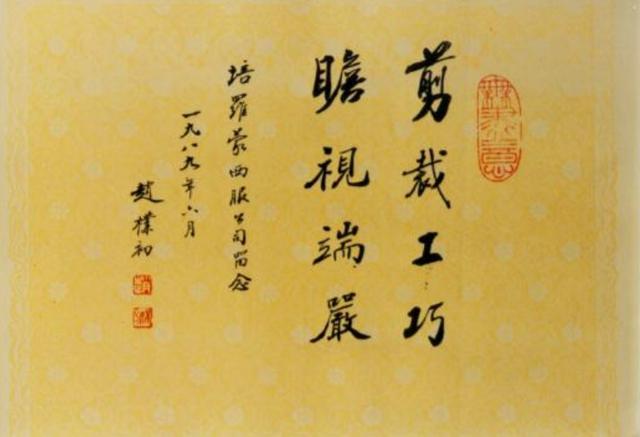 剪裁工巧
瞻視端嚴
培羅蒙西服公司留念
一九八九年六月
趙樸初